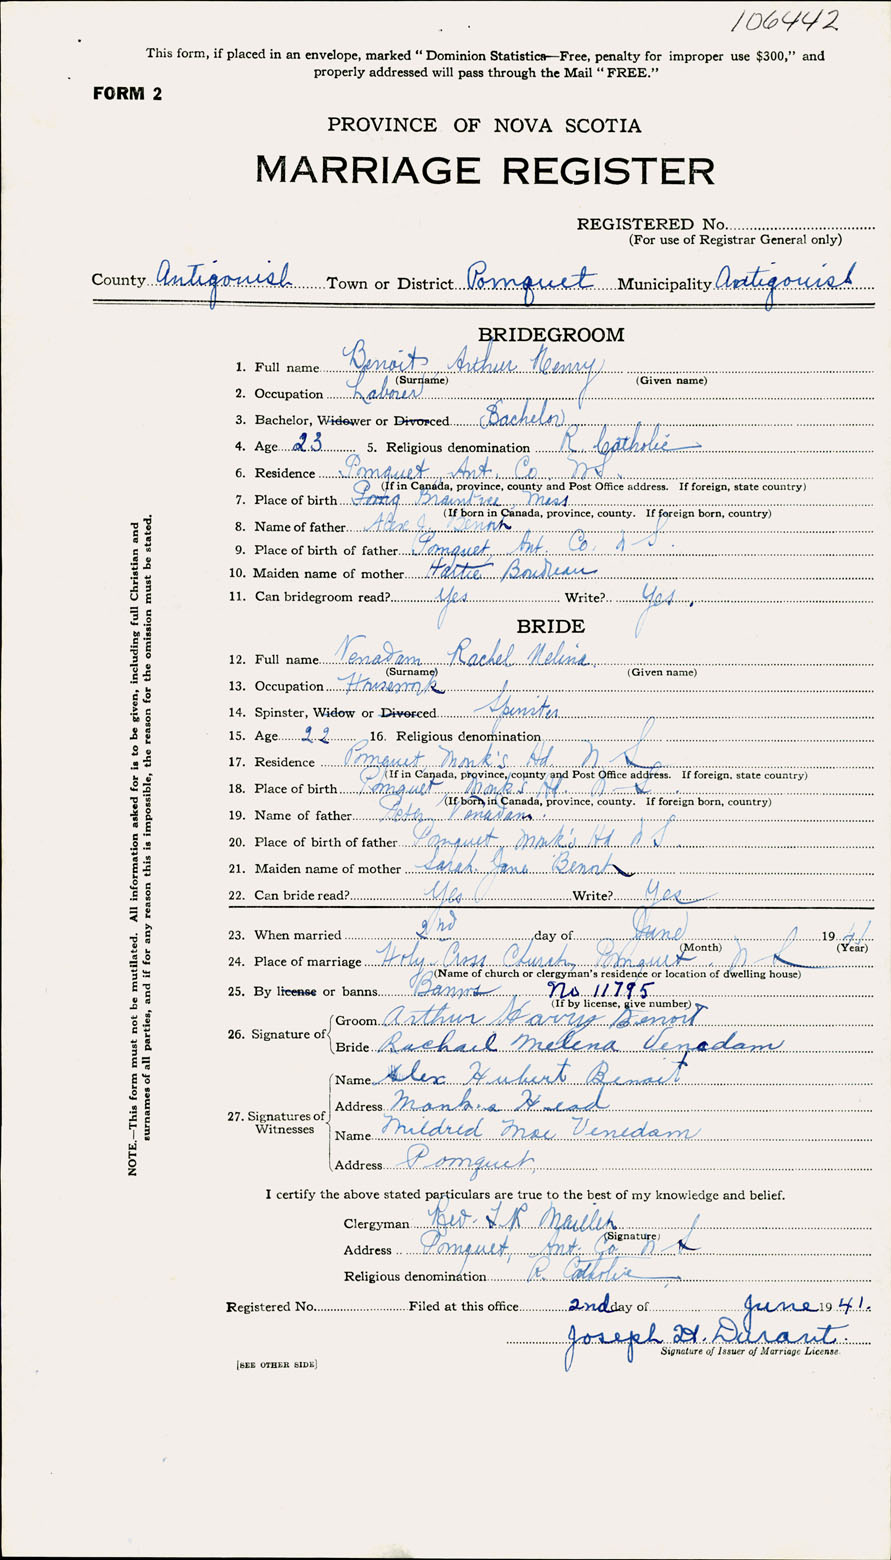 106442
This form, if placed in an envelope, marked “Dominion Statistics—Free, penalty for improper use $300,” and
properly addressed will pass through the Mail “FREE.”
FORM 2
PROVINCE OF NOVA SCOTIA
MARRIAGE REGISTER
REGISTERED No.
(For use of Registrar General only)
County Antigonish Town or District Pomquet Municipality Antigonish
BRIDEGROOM
1. Full name Benoit Arthur Henry
(Surname) (Given name)
2. Occupation Laborer
3. Bachelor, Widower or Divorced Bachelor
4. Age 23 5. Religious denomination R. Catholic
6. Residence Pomquet Ant. Co. N S.
(If in Canada, province, county and Post Office address. If foreign, state country)
7. Place of birth Pomq Braintree, Mass
(If born in Canada, province, county. If foreign born, country)
8. Name of father Alex J. Benoit
9. Place of birth of father Pomquet, Ant. Co. N S.
10. Maiden name of mother Hattie Boudreau
11. Can bridegroom read? Yes Write? Yes.
BRIDE
12. Full name Venadam Rachel Melina.
(Surname) (Given name)
13. Occupation Housework
14. Spinster, Widow or Divorced Spinster
15. Age 22 16. Religious denomination
17. Residence Pomquet Monk's Hd. N S
(If in Canada, province, county and Post Office address. If foreign, state country)
18. Place of birth Pomquet, Monk's Hd. N S
(If born in Canada, province, county. If foreign born, country)
19. Name of father Peter Venadam.
20. Place of birth of father Pomquet Monk's Hd N S.
21. Maiden name of mother Sarah Jane Benoit
22. Can bride read? Yes Write? Yes
23. When married 2nd day of June 19 41
(Month) (Year)
24. Place of marriage Holy Cross Church, Pomquet. N S
(Name of church or clergyman's residence or location of dwelling house)
25. By license or banns Banns No 11795
(If by license, give number)
26. Signature of
Groom Arthur Harry Benoit
Bride Rachael Melena Venedam
27. Signatures of Witnesses
Name Alex Hubert Benoit
Address Monks Head
Name Mildred Mae Venedam
Address Pomquet,
I certify the above stated particulars are true to the best of my knowledge and belief.
Clergyman Rev.
(Signature)
Address Pomquet, Ant. Co. N S
Religious denomination R. Catholic
Registered No. Filed at this office 2nd day of June 19 41.
Joseph H. Durant.
Signature of Issuer of Marriage License.
[SEE OTHER SIDE]
NOTE.—This form must not be mutilated. All information asked for is to be given, including full Christian and
surnames of all parties, and if for any reason this is impossible, the reason for the omission must be stated.